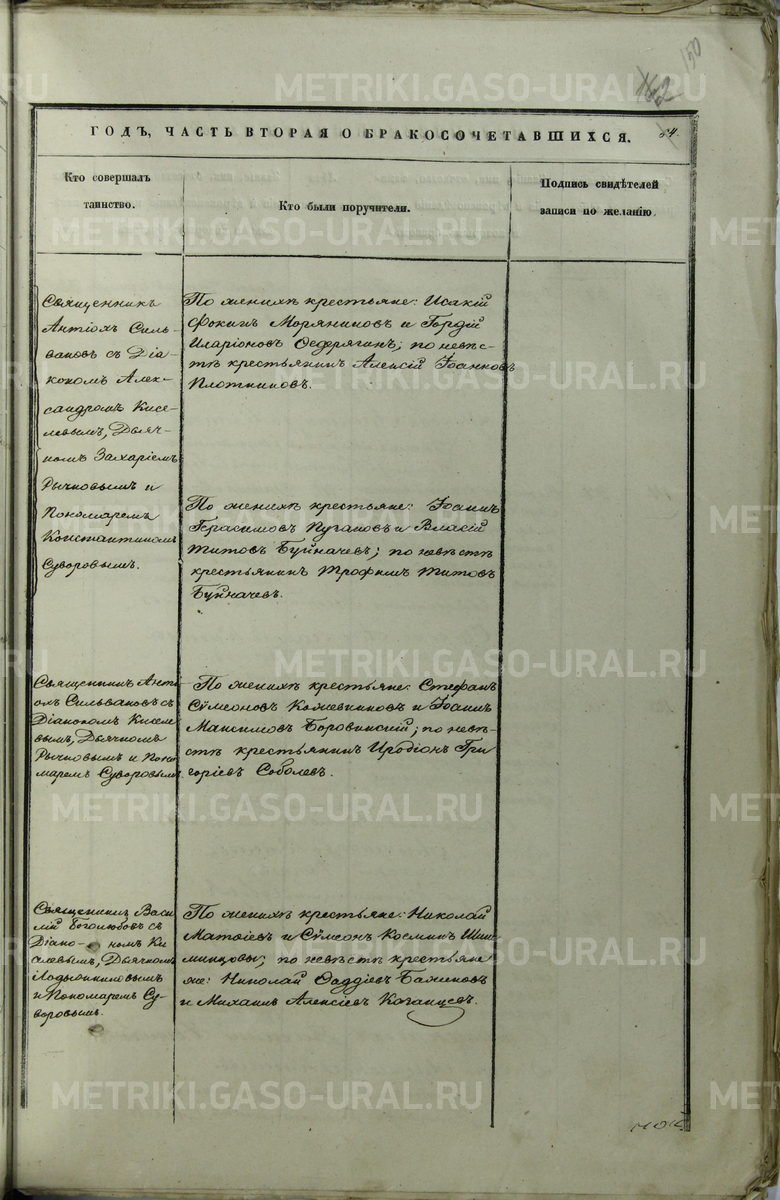 150
162
ГОДЪ, ЧАСТЬ ВТОРАЯ О БРАКОСОЧЕТАВШИХСЯ.
54
Кто совершалъ
таинство.
Кто были поручители.
Подпись свидѣтелей
записи по желанію.
Священникъ
Антіохъ Силь-
вановъ съ Діа-
кономъ Алек-
сандромъ Кисе-
левымъ, Дьяч-
комъ Захаріемъ
Рычковымъ и
Пономаремъ
Константиномъ
Суворовымъ.
По женихѣ крестьяне: Исакій
Фокинъ Моряниновъ и Гордій
Иларіоновъ Ѳедерягинъ; по невѣс-
тѣ крестьянинъ Алексій Іоанновъ
Плотниковъ.
По женихѣ крестьяне: Іоаннъ
Герасимовъ Пугановъ и Власій
Титовъ Буйначевъ; по невѣстѣ
крестьянинъ Трофимъ Титовъ
Буйначевъ.
Священникъ Анті-
охъ Сильвановъ съ
Діакономъ Кисел-
евымъ, Дьячкомъ
Рычковымъ и Поно-
маремъ Суворовымъ.
По женихѣ крестьяне: Стефанъ
Сѵмеоновъ Кожевниковъ и Іоаннъ
Максимовъ Боровинскій; по невѣ-
стѣ крестьянинъ Иродіонъ Гри
горіевъ Соболевъ.
Священникъ Васи
лій Боголюбовъ съ
Діако- номъ Ки
селевымъ, Дьячкомъ
и Пономаремъ Су-
воровымъ.
По женихѣ крестьяне: Николай
Матѳіевъ и Сѵмеонъ Космины
по невѣстѣ крестья
не: Николай Ѳаддіевъ Баженовъ
и Михаилъ Алексіевъ Каганцевъ.
METRIKI.GASO-URAL.RU